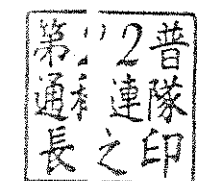 第2普
通科連隊
長之印